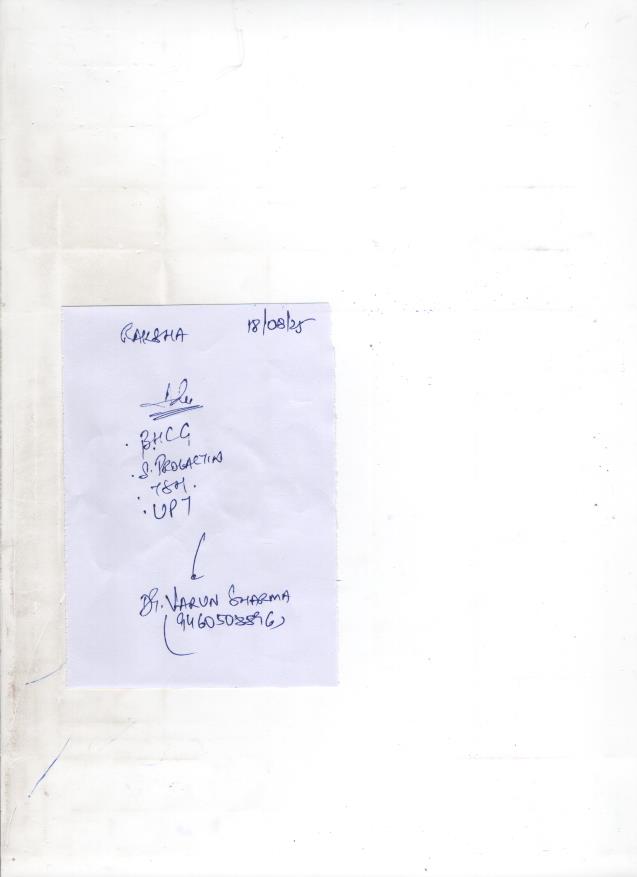 RAKSHA 18/08/25
Adv
. BHCG
. S. PROLACTIN
. TSH.
. UPT
DR. VARUN SHARMA